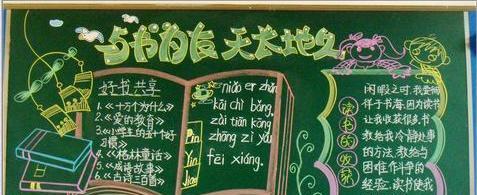 与书为友 天长地久
好书共享
《十万个为什么》
《爱的教育》
《小学生的五十个好
习惯》
《格林童话》
《成语故事》
《古诗三百首》
niǎo er zhǎn
kāi chì bǎng,
zài tiān kōng
zhōng zì yóu
fēi xiáng.
读书的收获
闲暇之时,我爱
伴于书海,因为读书
让我收获很多,书
教给我冷静处事
的方法,教给与
困难作斗争的
经验,读书使我